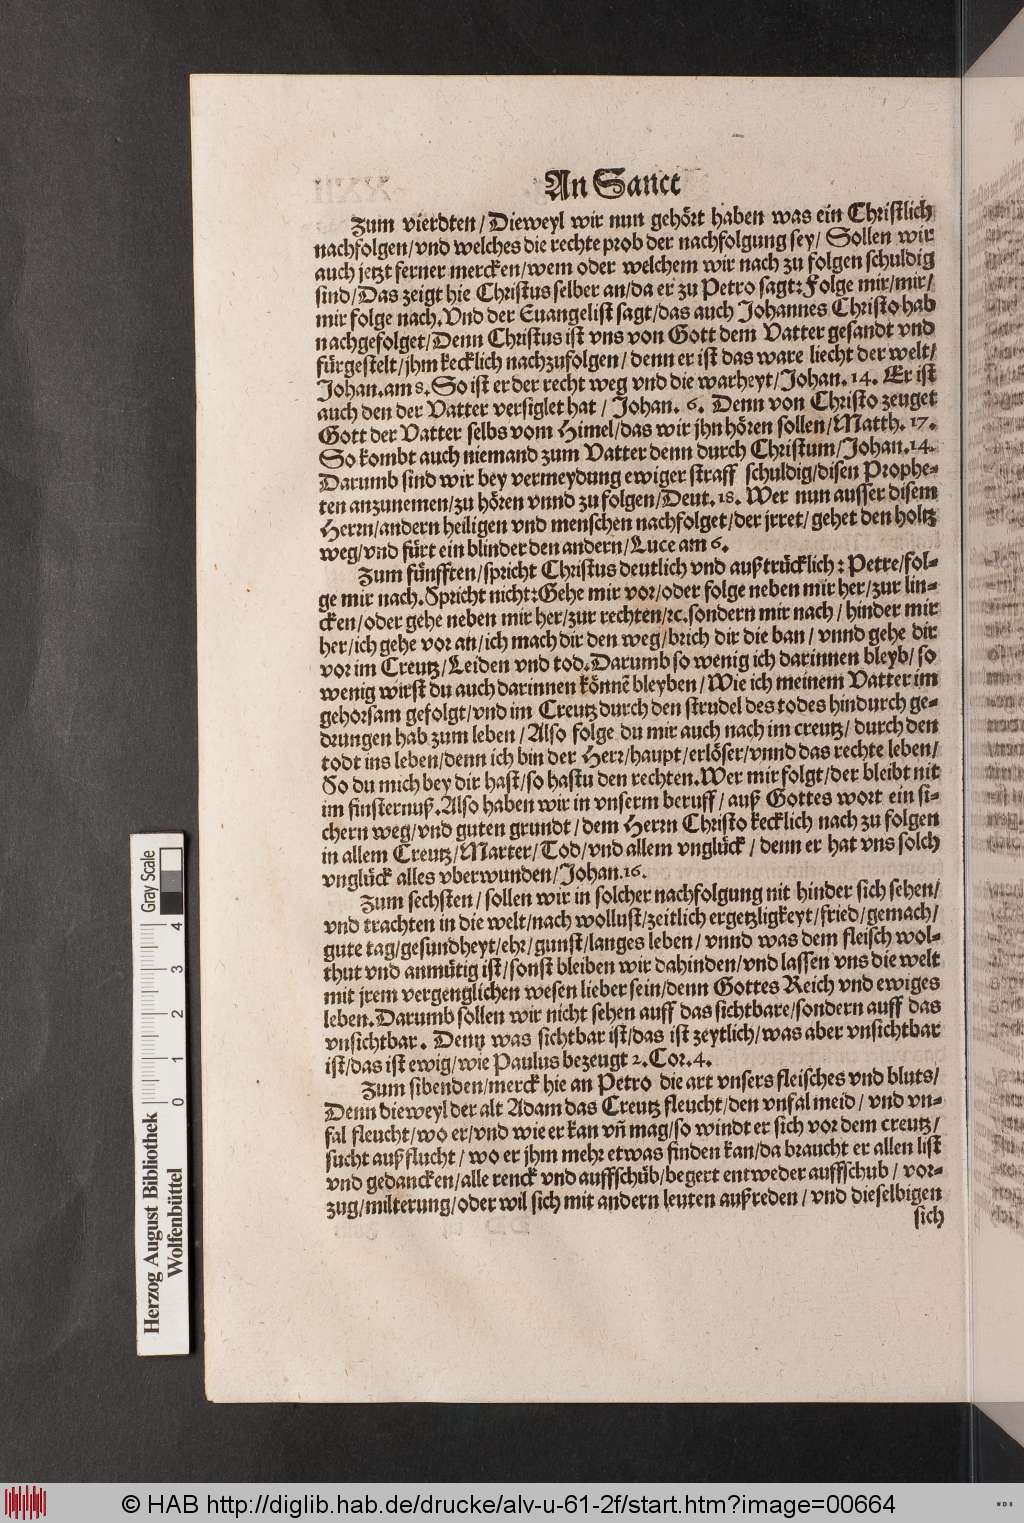 An Sanct
Zum vierdten/ Dieweyl wir nun gehört haben was ein Christlich
nachfolgen/ vnd welches die rechte prob der nachfolgung sey/ Sollen wir
auch jetzt ferner mercken/ wem oder welchem wir nach zu folgen schuldig
sind/ Das zeigt hie Christus selber an/ da er zu Petro sagt: Folge mir/ mir/
mir folge nach. Vnd der Euangelist sagt/ das auch Johannes Christo hab
nachgefolget/ Denn Christus ist vns von Gott dem Vatter gesandt vnd
fürgestelt/ jhm kecklich nachzufolgen/ denn er ist das ware liecht der welt/
Johan. am 8. So ist er der recht weg vnd die warheyt/ Johan. 14. Er ist
auch den der Vatter versiglet hat/ Johan. 6. Denn von Christo zeuget
Gott der Vatter selbs vom Himel/ das wir jhn hören sollen/ Matth. 17.
So kombt auch niemand zum Vatter denn durch Christum/ Johan. 14.
Darumb sind wir bey vermeydung ewiger straff schuldig/ disen Prophe-
ten anzunemen/ zu hören vnnd zu folgen/ Deut. 18. Wer nun ausser disem
Herrn/ andern heiligen vnd menschen nachfolget/ der jrret/ gehet den holtz
weg/ vnd fürt ein blinder den andern/ Luce am 6.
Zum fünfften/ spricht Christus deutlich vnd außtrücklich: Petre/ fol-
ge mir nach. Spricht nicht: Gehe mir vor/ oder folge neben mir her/ zur lin-
cken/ oder gehe neben mir her/ zur rechten/ ꝛc. sondern mir nach/ hinder mir
her/ ich gehe vor an/ ich mach dir den weg/ brich dir die ban/ vnnd gehe dir
vor im Creutz/ Leiden vnd tod. Darumb so wenig ich darinnen bleyb/ so
wenig wirst du auch darinnen könnē bleyben/ Wie ich meinem Vatter im
gehorsam gefolgt/ vnd im Creutz durch den strudel des todes hindurch ge-
drungen hab zum leben/ Also folge du mir auch nach im creutz/ durch den
todt ins leben/ denn ich bin der Herr/ haupt/ erlöser/ vnnd das rechte leben/
So du mich bey dir hast/ so hastu den rechten. Wer mir folgt/ der bleibt nit
im finsternuß. Also haben wir in vnserm beruff/ auß Gottes wort ein si-
chern weg/ vnd guten grundt/ dem Herrn Christo kecklich nach zu folgen
in allem Creutz/ Marter/ Tod/ vnd allem vnglück/ denn er hat vns solch
vnglück alles vberwunden/ Johan. 16.
Zum sechsten/ sollen wir in solcher nachfolgung nit hinder sich sehen/
vnd trachten in die welt/ nach wollust/ zeitlich ergetzligkeyt/ fried/ gemach/
gute tag/ gesundheyt/ ehr/ gunst/ langes leben/ vnnd was dem fleisch wol-
thut vnd anmütig ist/ sonst bleiben wir dahinden/ vnd lassen vns die welt
mit jrem vergenglichen wesen lieber sein/ denn Gottes Reich vnd ewiges
leben. Darumb sollen wir nicht sehen auff das sichtbare/ sondern auff das
vnsichtbar. Denn was sichtbar ist/ das ist zeytlich/ was aber vnsichtbar
ist/ das ist ewig/ wie Paulus bezeugt 2. Cor. 4.
Zum sibenden/ merck hie an Petro die art vnsers fleisches vnd bluts/
Denn dieweyl der alt Adam das Creutz fleucht/ den vnfal meid/ vnd vn-
fal fleucht/ wo er/ vnd wie er kan vñ mag/ so windt er sich vor dem creutz/
sucht außflucht/ wo er jhm mehr etwas finden kan/ da braucht er allen list
vnd gedancken/ alle renck vnd auffschüb/ begert entweder auffschub/ vor-
zug/ milterung/ oder wil sich mit andern leuten außreden/ vnd dieselbigen
sich
Gray Scale
4
3
2
1
0
Herzog August Bibliothek
Wolfenbüttel
© HAB http://diglib.hab.de/drucke/alv-u-61-2f/start.htm?image=00664